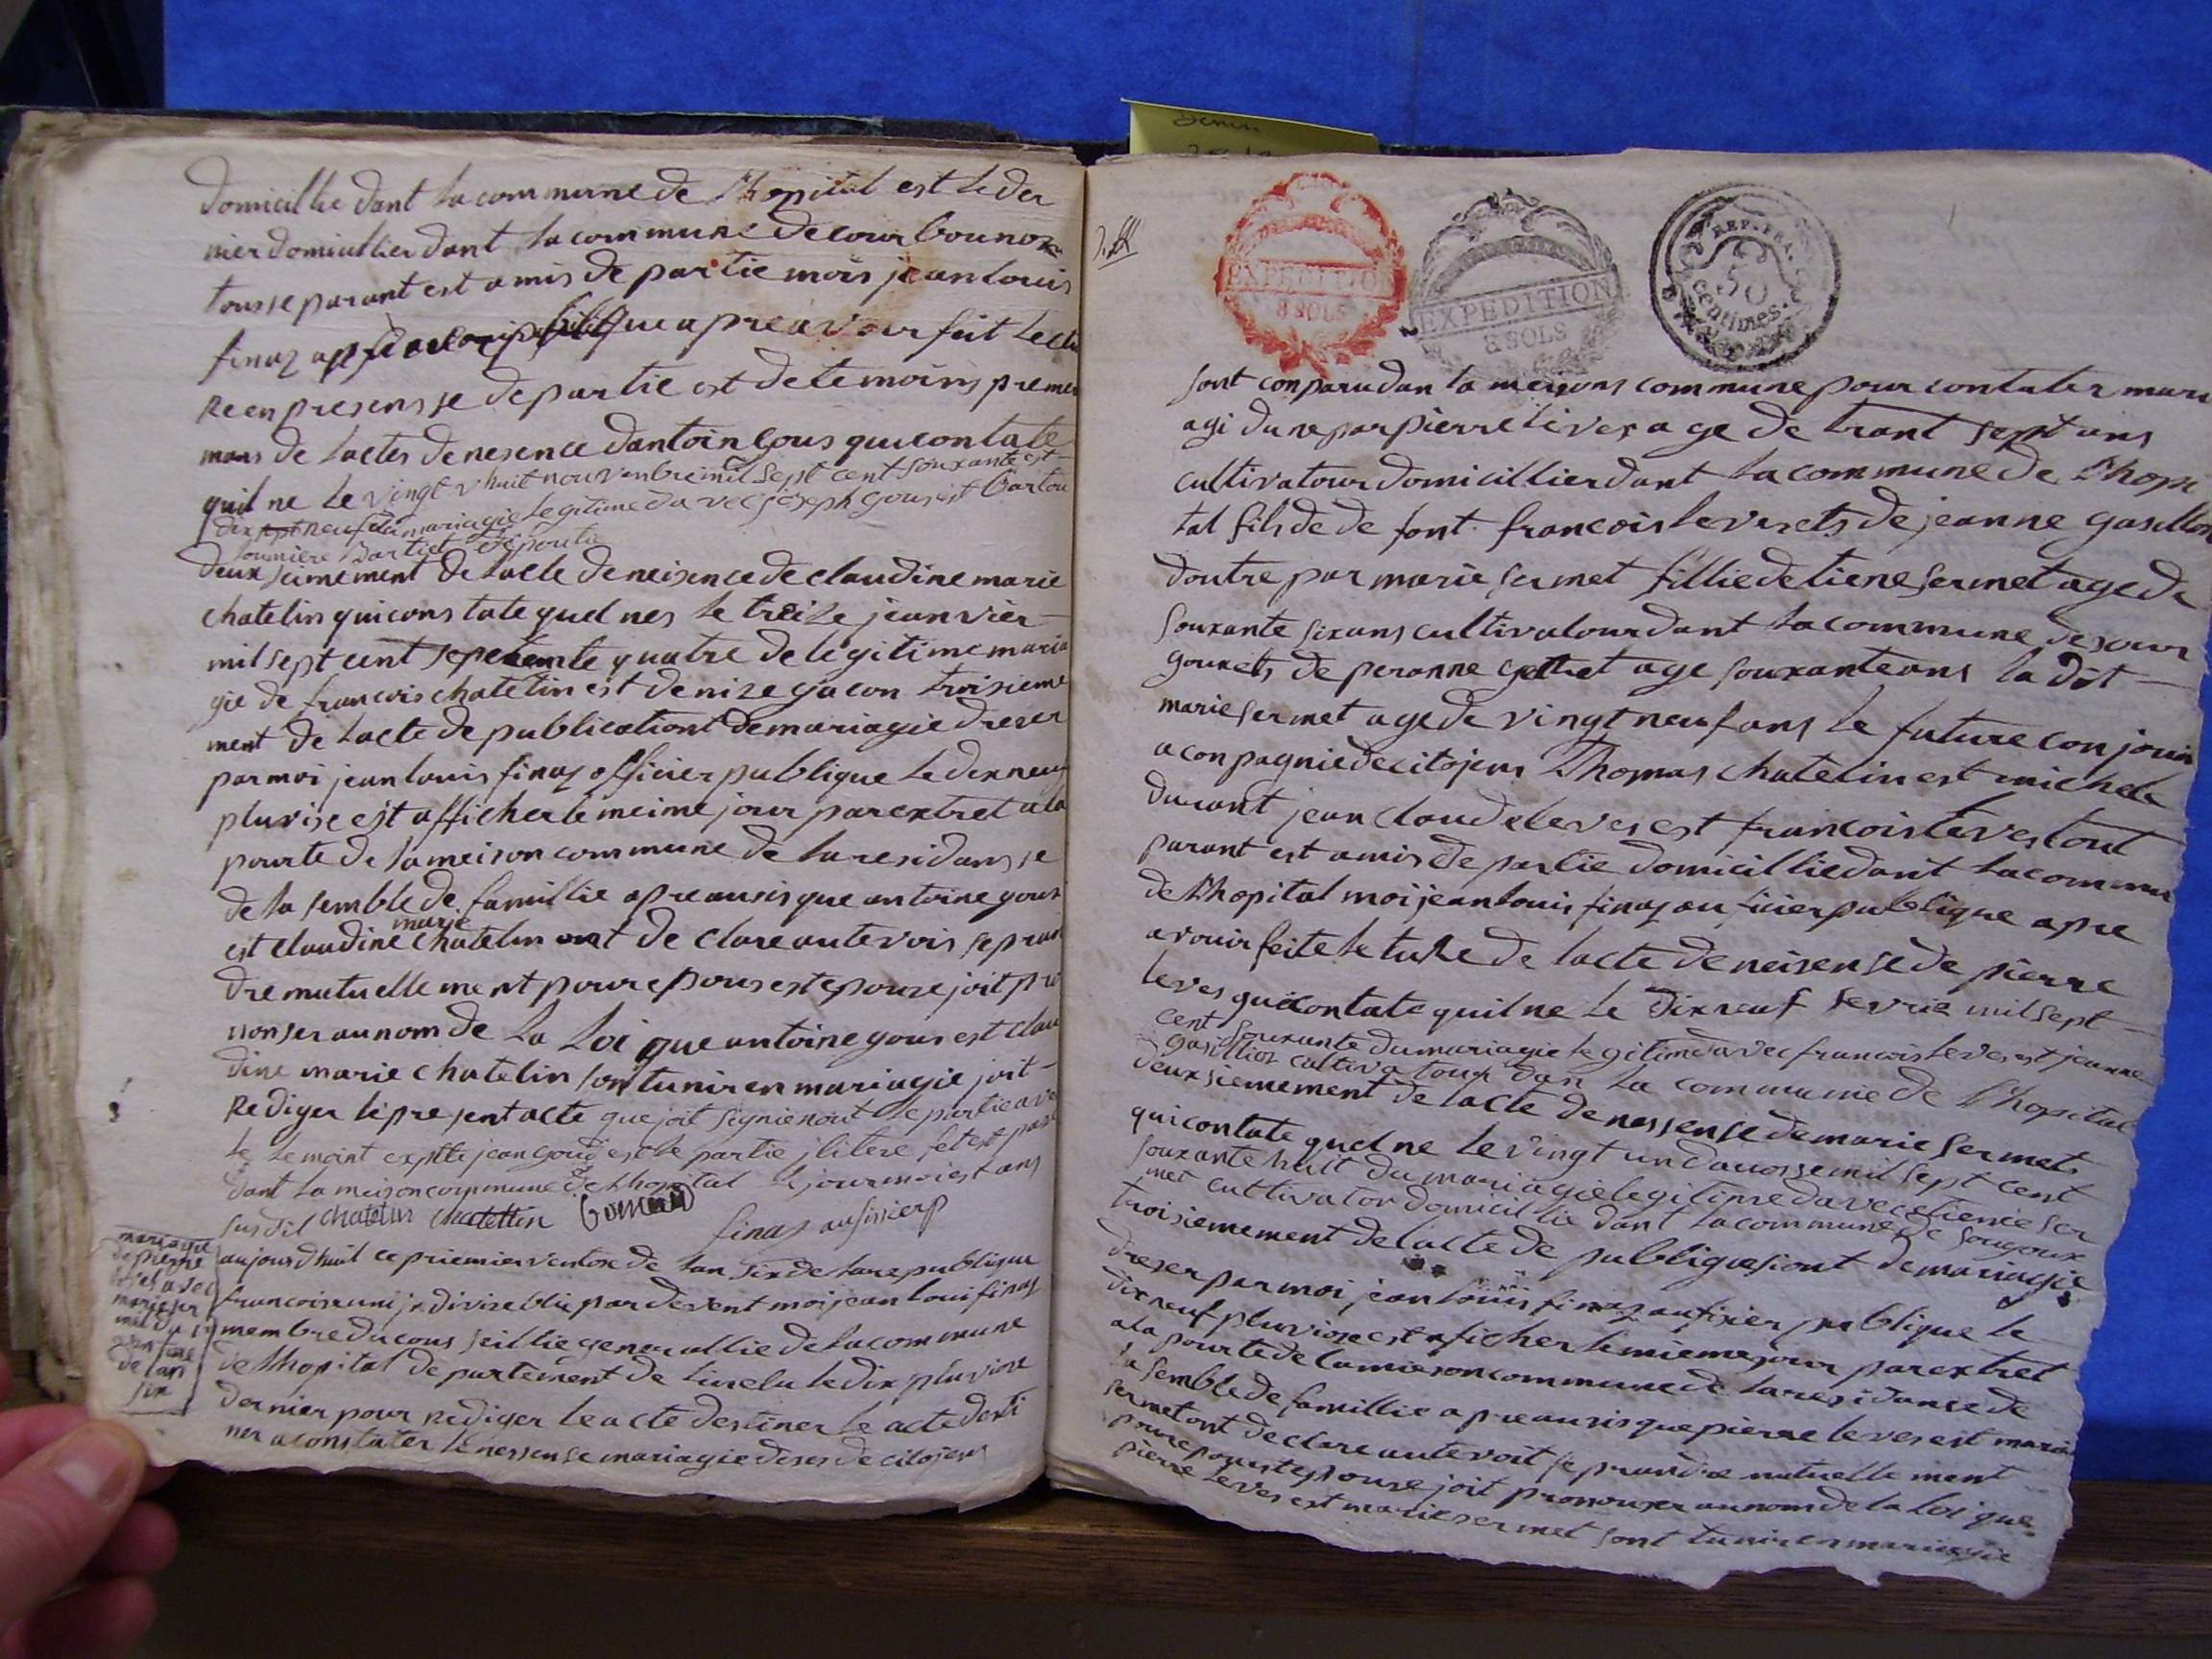 domicillie dant la commune de Lhopital est le der
nier domicillier dant la commune de cour bounox
tousse parant est amis de partie mois jean louis
finaz que apre avour fait lectu
re en presensse de partie est de temoins premie
mans de lactes de nesence dantoin gous qui contate
quil ne le vingt vhuit nouvenbre mil sept cent souxante est
dix neuf du mariagie legitime davec joseph gous est
deuxsiemement de lacte de neisence de claudine marie
chatelin qui cons tate quel nes le treize jeanvier
mil sept cent quatre de legitime maria
gie de francois chatelin est denize gacon troisieme
ment de lacte de publicationt de mariagie dreser
par moi jean louis finaz officier publique le dix neuf
pluvise est afficher le meime jour par extret a la
pourte de la meison commune de la residansse
de la semble de famillie apre ausis que antoine gous
marie
est claudine chatelin ont de clare aute vois se pran
dre mutuellement pour epous est epouse joit pro
nonser au nom de la Loi que antoine gous est clau
dine marie chatelin sont unir en mariagie joit
Rediger le present acte que joit signie nout le partie ave
le temoint jean est le partie litere fet est pase
dant la meison commune de Lhopital le jour moi est ans
susdit chatelin chatettin finaz aufisierp
mariagie
de pierre
levet avec
marie ser
met du 1er
ventose
de lan
six
aujourdhuit ce priemier ventose de lan six de la republique
francoise uni indivizeblie par devent moi jean loui finaz
membre du cous seillie generallie de la commune
de Lhopital de partement de lu le dix pluviose
dernier pour rediger le acte destiner le acte desti
ner a constater le nessense mariagie deses de citojens
EXPEDITION
8 SOLS
EXPEDITION
8 SOLS
REP. FRA.
50
centimes.
sont conparu dan la meisons commune pour contater mari
agi dune par pierre leves age de trant sept ans
cultivatour domicillier dant la commune de Lhopi
tal fils de de font francois leves ets de jeanne gasillion
doutre par marie sermet fillie detiene sermet age de
souxante six ans cultivatour dant la commune de sour
goux ets de peronne age souxante ans la dit
marie sermet age de vingt neuf ans le future conjoin
aconpagnie de citojens Thomas chatelin est michele
durant jean claude leves est francois leves tout
parant est amis de partie domicillie dant la commu
de Lhopital moi jean louis finaz au ficier publique apre
avouir feite lecture de lacte de neisense de pierre
leves qui contate quil ne le dix neuf fevrie mil sept
cent souxante du mariagie legitime davec francois leves est jeanne
gasillion cultivatour dan la commune de Lhopital
deuxsiemement de lacte de nessense de marie sermet
qui contate quel ne le vingt un daousse mil sept cent
souxante huit du mariagie legitime davec etiene ser
met cultivator domicillie dant la commune de sourgoux
troisiemement de lacte de publiquasiont de mariagie
dreser par moi jean louis finaz aufisier publique le
dix neuf pluviose est aficher le mieme jour par extret
a la pourte de la mieson commune de la residanse de
la semble de famillie apre ausis que pierre leves est marie
sermet ont declare aute voit se prandre mutuelle ment
pour epous est epouse joit pronouser au nom de la Loi que
pierre leves est marie sermet sont tunir en mariagie